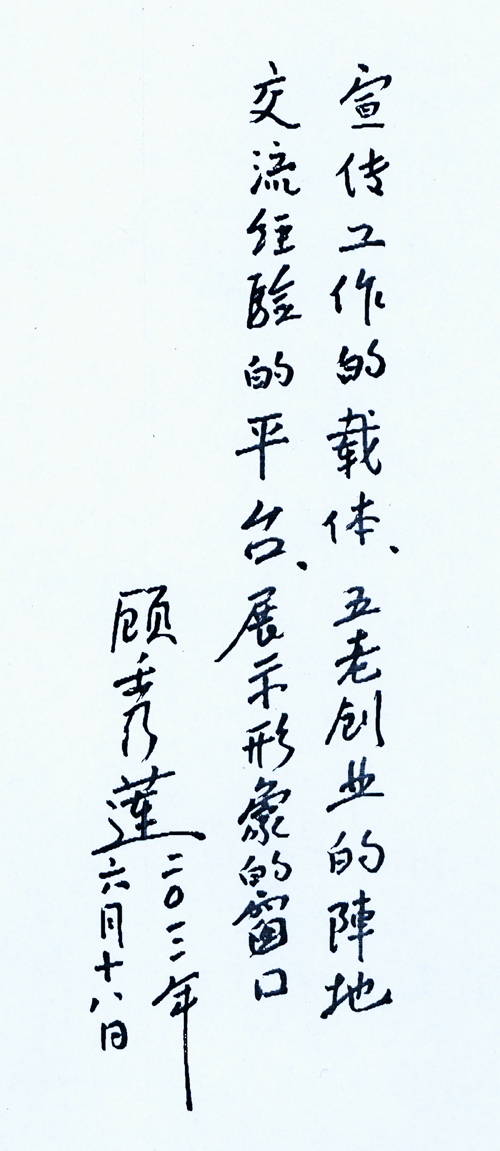 宣传工作的载体、五老创业的陣地
交流经验的平台、展示形象的窗口
顾秀蓮
二〇一三年
六月十八日